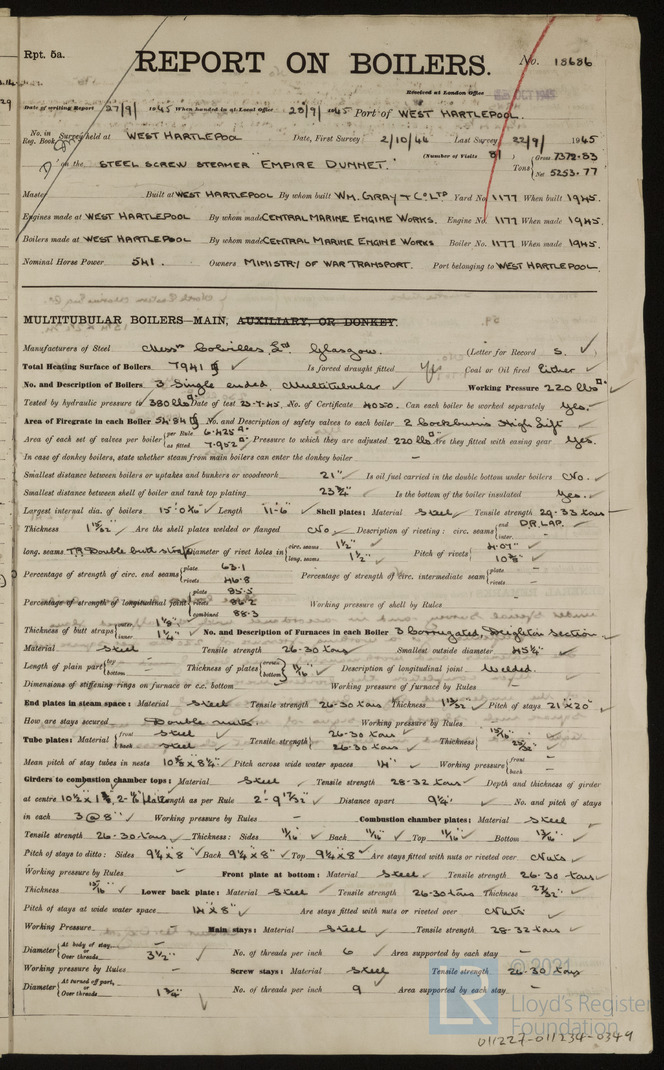 Rpt. 5a.
REPORT ON BOILERS.
No. 18686
Received at London Office
OCT 1945
Date of writing Report 27/9/ 1945 When handed in at Local Office 28/9/ 1945 Port of WEST HARTLEPOOL.
No. in Reg. Book. Survey held at WEST HARTLEPOOL Date, First Survey 2/10/44 Last Survey 22/9/ 1945
(Number of Visits 81 )
on the STEEL SCREW STEAMER "EMPIRE DUNNET." Tons { Gross 7372.83 Net 5253.77
Master Built at WEST HARTLEPOOL By whom built WM. GRAY & CO LTD Yard No. 1177 When built 1945.
Engines made at WEST HARTLEPOOL By whom made CENTRAL MARINE ENGINE WORKS. Engine No. 1177 When made 1945.
Boilers made at WEST HARTLEPOOL By whom made CENTRAL MARINE ENGINE WORKS Boiler No. 1177 When made 1945.
Nominal Horse Power 541. Owners MINISTRY OF WAR TRANSPORT. Port belonging to WEST HARTLEPOOL.
MULTITUBULAR BOILERS—MAIN, AUXILIARY, OR DONKEY.
Manufacturers of Steel Messrs Colvilles, Ltd Glasgow. (Letter for Record S. ✓)
Total Heating Surface of Boilers 7941 ✓ Is forced draught fitted Yes Coal or Oil fired Either ✓
No. and Description of Boilers 3 Single ended, Multitubular ✓ Working Pressure 220 lbs ✓
Tested by hydraulic pressure to 380 lbs Date of test 23.7.45. No. of Certificate 4050. Can each boiler be worked separately Yes.
Area of Firegrate in each Boiler 54.84 No. and Description of safety valves to each boiler 2 Cockburns High Lift ✓
Area of each set of valves per boiler { per Rule 6.425 as fitted 7.952 Pressure to which they are adjusted 220 lbs Are they fitted with easing gear Yes.
In case of donkey boilers, state whether steam from main boilers can enter the donkey boiler —
Smallest distance between boilers or uptakes and bunkers or woodwork 21" ✓ Is oil fuel carried in the double bottom under boilers No. ✓
Smallest distance between shell of boiler and tank top plating 23 3/4" ✓ Is the bottom of the boiler insulated Yes. ✓
Largest internal dia. of boilers Length 11-6 ✓ Shell plates: Material Steel ✓ Tensile strength 29-33 tons
Thickness 1 15/32 ✓ Are the shell plates welded or flanged No ✓ Description of riveting: circ. seams { end D.R. LAP. inter.
long. seams T.R. Double butt straps Diameter of rivet holes in { circ. seams 1 1/2" ✓ long. seams 1 1/2" ✓ Pitch of rivets { 4.07" ✓ 10 5/8" ✓
Percentage of strength of circ. end seams { plate 63.1 rivets 46.8 Percentage of strength of circ. intermediate seam { plate — rivets —
Percentage of strength of longitudinal joint { plate 85.5 rivets 86.2 combined 88.3 Working pressure of shell by Rules —
Thickness of butt straps { outer 1 1/8" inner 1 1/4" ✓ No. and Description of Furnaces in each Boiler 3 Corrugated, Deighton section ✓
Material Steel Tensile strength 26-30 tons ✓ Smallest outside diameter 45 1/4" ✓
Length of plain part { top — bottom — Thickness of plates { crown bottom } 11/16 ✓ Description of longitudinal joint Welded.
Dimensions of stiffening rings on furnace or c.c. bottom — Working pressure of furnace by Rules —
End plates in steam space: Material Steel Tensile strength 26-30 tons Thickness 1 13/32 ✓ Pitch of stays 21" x 20" ✓
How are stays secured Double nuts. Working pressure by Rules —
Tube plates: Material { front Steel ✓ back Steel ✓ Tensile strength { 26-30 tons ✓ 26-30 tons ✓ Thickness { 15/16" ✓ 25/32" ✓
Mean pitch of stay tubes in nests 10 5/8 x 8 1/4" ✓ Pitch across wide water spaces 14" ✓ Working pressure { front — back —
Girders to combustion chamber tops: Material Steel ✓ Tensile strength 28-32 tons ✓ Depth and thickness of girder
at centre Length as per Rule 2'-9 17/32" ✓ Distance apart 9 1/4" ✓ No. and pitch of stays
in each 3 @ 8" ✓ Working pressure by Rules — Combustion chamber plates: Material Steel ✓
Tensile strength 26-30 tons ✓ Thickness: Sides 11/16" ✓ Back 11/16" ✓ Top 11/16" ✓ Bottom 13/16" ✓
Pitch of stays to ditto: Sides 9 1/4 x 8" ✓ Back 9 1/4 x 8" ✓ Top 9 1/4 x 8" ✓ Are stays fitted with nuts or riveted over Nuts ✓
Working pressure by Rules — Front plate at bottom: Material Steel ✓ Tensile strength 26-30 tons ✓
Thickness 15/16" ✓ Lower back plate: Material Steel ✓ Tensile strength 26-30 tons Thickness 27/32" ✓
Pitch of stays at wide water space 14" x 8" ✓ Are stays fitted with nuts or riveted over Nuts ✓
Working Pressure — Main stays: Material Steel ✓ Tensile strength 28-32 tons ✓
Diameter { At body of stay, or Over threads 3 1/2" ✓ No. of threads per inch 6 ✓ Area supported by each stay —
Working pressure by Rules — Screw stays: Material Steel ✓ Tensile strength 26-30 tons
Diameter { At turned off part, or Over threads 1 3/4" ✓ No. of threads per inch 9 ✓ Area supported by each stay —
© 2021
LR
Lloyd's Register
Foundation
011227-011234-0349